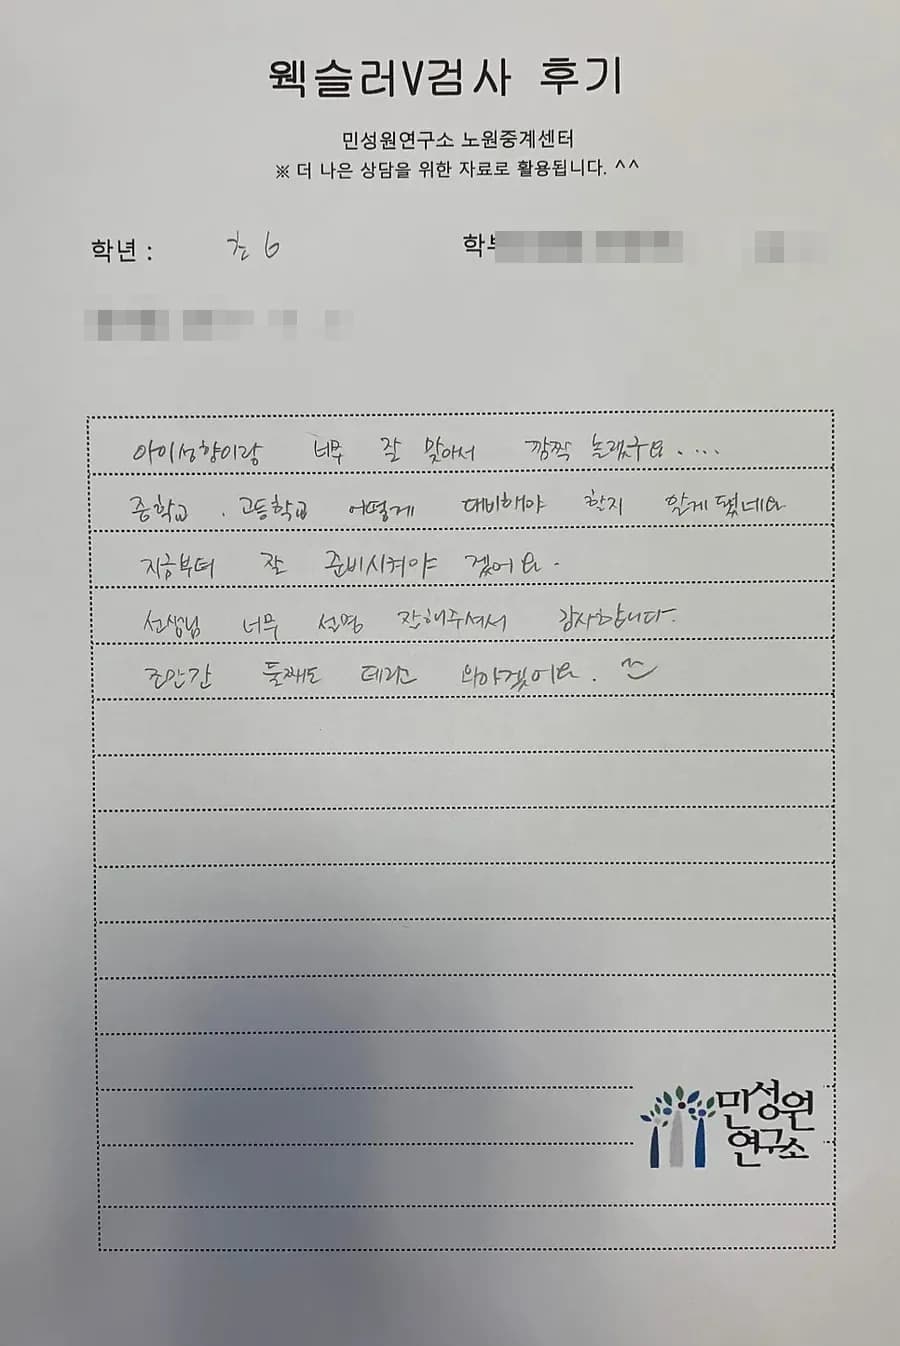 웩슬러V검사 후기
민성원연구소 노원중계센터
※ 더 나은 상담을 위한 자료로 활용됩니다. ^^
학년 : 초 6
아이성향이랑 너무 잘 맞아서 깜짝 놀랬구요....
중학교, 고등학교 어떻게 대비해야 할지 알게 됐네요
지금부터 잘 준비시켜야 겠어요.
선생님 너무 설명 잘해주셔서 감사합니다.
조만간 둘째도 데리고 와야겠어요.
민성원
연구소